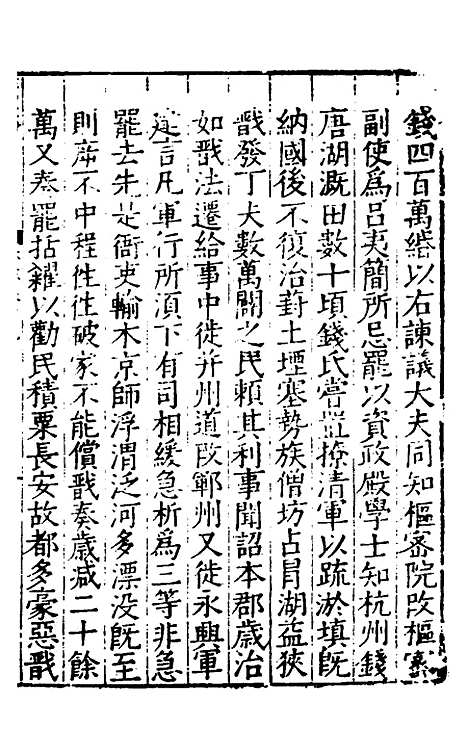 錢四百萬緡以右諫議大夫同知樞密院改樞密
副使為呂夷簡所忌罷以資政殿學士知杭州錢
唐湖溉田數十頃錢氏嘗置撩清軍以疏淤填既
納國後不復治葑土堙塞勢族僧坊占冒湖益狹
戩發丁夫數萬闢之民賴其利事聞詔本郡歲治
如戩法遷給事中徙并州道改鄆州又徙永興軍
建言凡軍行所須下有司相緩急析為三等非急
罷去先是衙吏輸木京師浮渭泛河多漂没既至
則斥不中程徃徃破家不能償戩奏歲减二十餘
萬又奏罷括糴以勸民積粟長安故都多豪惡戩